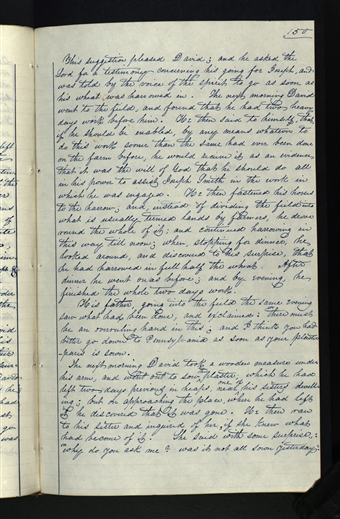 150
This suggestion pleased David; and he asked the
Lord for a testimony concerning his going for Joseph, and
was told by the voice of the spirit to go as soon as
his wheat was harrowed in. The next morning David
went to the field, and found that he had two heavy
days work before him. He then said to himself, that
if he should be enabled, by any means whatever to
do this work sooner than the same had ever been done
on the farm before, he would receive it as an evidence,
that it was the will of God that he should do all
in his power to assist Joseph Smith in the work in
which he was engaged. He then fastened his horses
to the harrow; and, instead of dividing the field into
what is usually termed lands by farmers, he drove
round the whole of it; and continued harrowing in
this way till noon; when, stopping for dinner, he
looked around, and discovered to his surprise, that
he had harrowed in full half the wheat. After
dinner he went on as before; and by evening, he
finished the whole two days work.
His father, going into the field the same evening
saw what had been done, and exclaimed: There must
be an overruling hand in this; and I think you had
better go down to Pennsylvania as soon as your plaster
-paris is sown.
The next morning David took a wooden measure under
his arm, and went out to sow plaster, which he had
left two days previous in heaps near his sister's dwell
ing; but on approaching the place, when he had left
it he discovered that it was gone. He then ran
to his sister and inquired of her, if she knew what
had become of it. She said with some surprise,:
why do you ask me? was it not all sown yesterday;